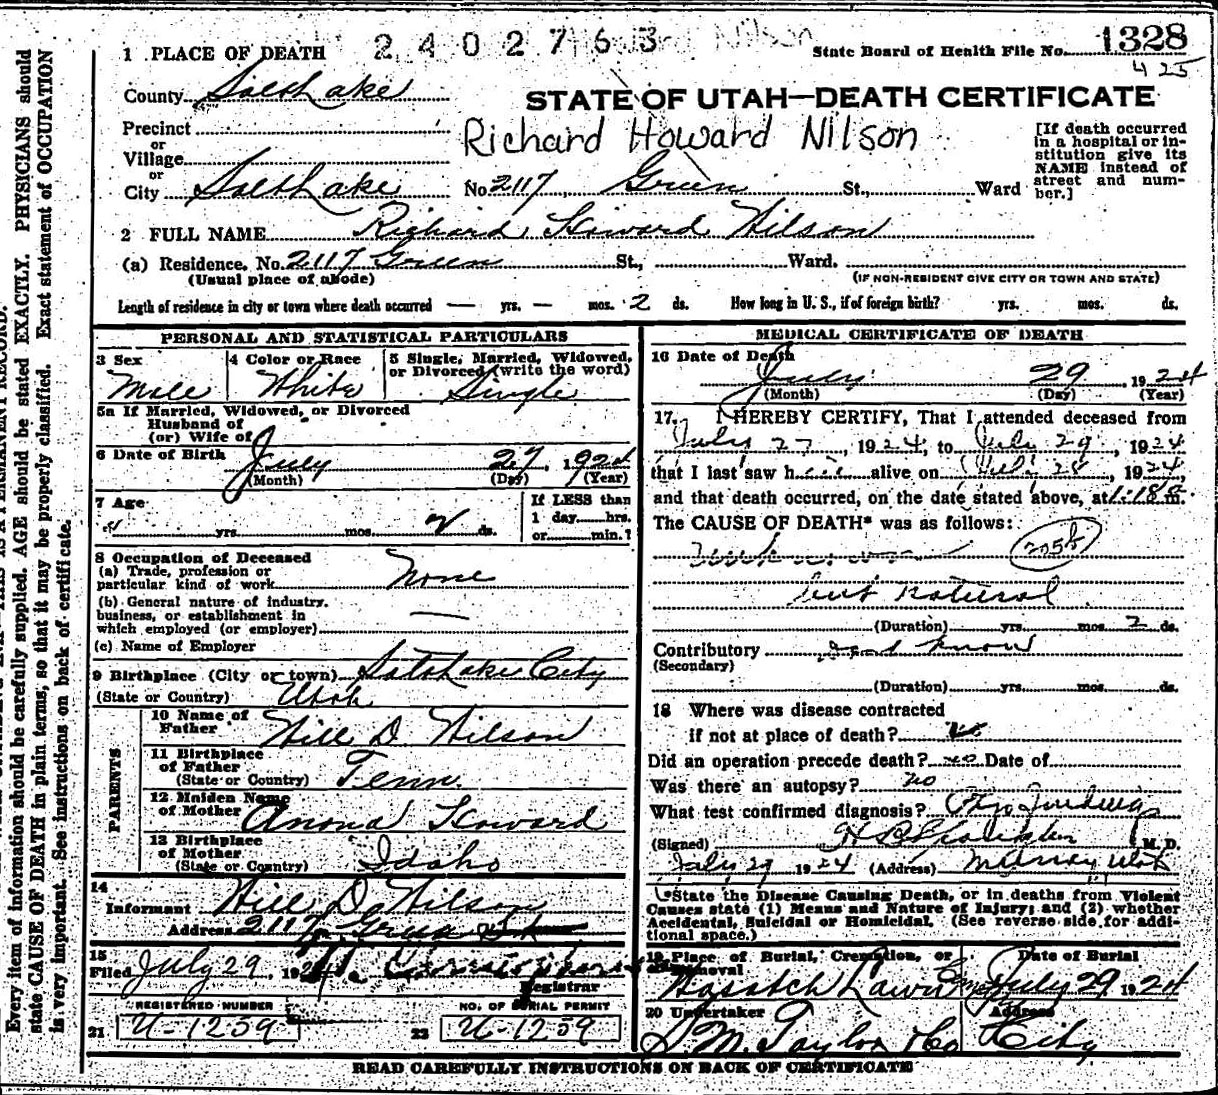 2402763
1 PLACE OF DEATH
State Board of Health File No. 1328
425
County Salt Lake
STATE OF UTAH—DEATH CERTIFICATE
Precinct
or
Village
or
City Salt Lake
Richard Howard Nilson
No. 2117 Green St., Ward
[If death occurred
in a hospital or in-
stitution give its
NAME instead of
street and num-
ber.]
2 FULL NAME Richard Howard Nilson
(a) Residence. No. 2117 Green St., Ward.
(Usual place of abode)
(IF NON-RESIDENT GIVE CITY OR TOWN AND STATE)
Length of residence in city or town where death occurred — yrs. — mos. 2 ds. How long in U. S., if of foreign birth? yrs. mos. ds.
PERSONAL AND STATISTICAL PARTICULARS
3 Sex
Male
4 Color or Race
White
5 Single, Married, Widowed,
or Divorced (write the word)
Single
5a If Married, Widowed, or Divorced
Husband of
(or) Wife of
6 Date of Birth July 27, 1924
(Month) (Day) (Year)
7 Age
yrs. mos. 2 ds.
If LESS than
1 day hrs.
or min.?
8 Occupation of Deceased
(a) Trade, profession or
particular kind of work None
(b) General nature of industry,
business, or establishment in
which employed (or employer) —
(c) Name of Employer
9 Birthplace (City or town) Salt Lake City
(State or Country) Utah
PARENTS
10 Name of
Father Will D Nilson
11 Birthplace
of Father
(State or Country) Tenn.
12 Maiden Name
of Mother Anona Howard
13 Birthplace
of Mother
(State or Country) Idaho
14
Informant Will D. Nilson
Address 2117 Green
15
Filed July 29, 1924
Registrar
REGISTERED NUMBER
21 U-1259
NO. OF BURIAL PERMIT
22 U-1259
MEDICAL CERTIFICATE OF DEATH
16 Date of Death
July 29 1924
(Month) (Day) (Year)
17. I HEREBY CERTIFY, That I attended deceased from
July 27, 1924, to July 29, 1924
that I last saw h alive on July 28, 1924,
and that death occurred, on the date stated above, at m.
The CAUSE OF DEATH* was as follows:
Unknown 205b
but Natural
(Duration) yrs. mos. 2 ds.
Contributory dont know
(Secondary)
(Duration) yrs. mos. ds.
18 Where was disease contracted
if not at place of death?
Did an operation precede death? no Date of
Was there an autopsy? no
What test confirmed diagnosis?
(Signed) M. D.
July 29 1924 (Address) Murray Utah
*State the Disease Causing Death, or in deaths from Violent
Causes state (1) Means and Nature of Injury; and (2) whether
Accidental, Suicidal or Homicidal. (See reverse side for addi-
tional space.)
19 Place of Burial, Cremation, or
Removal
Wasatch Lawn
Date of Burial
July 29 1924
20 Undertaker
S. M. Taylor & Co
Address
City
READ CAREFULLY INSTRUCTIONS ON BACK OF CERTIFICATE
Every item of information should be carefully supplied. AGE should be stated EXACTLY. PHYSICIANS should
state CAUSE OF DEATH in plain terms, so that it may be properly classified. Exact statement of OCCUPATION
is very important. See instructions on back of certificate.